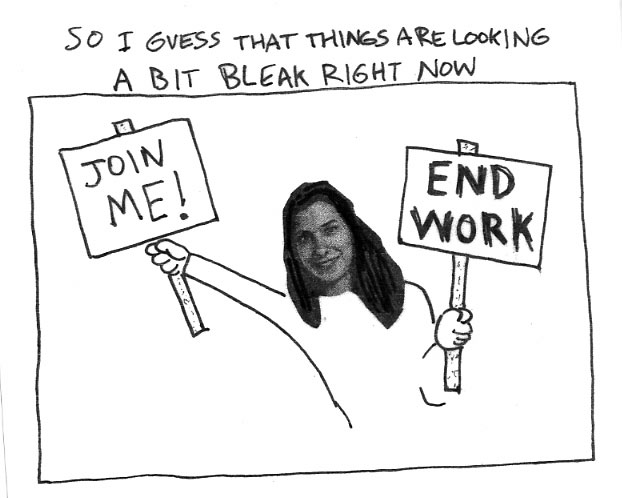 SO I GUESS THAT THINGS ARE LOOKING
A BIT BLEAK RIGHT NOW
JOIN
ME!
END
WORK